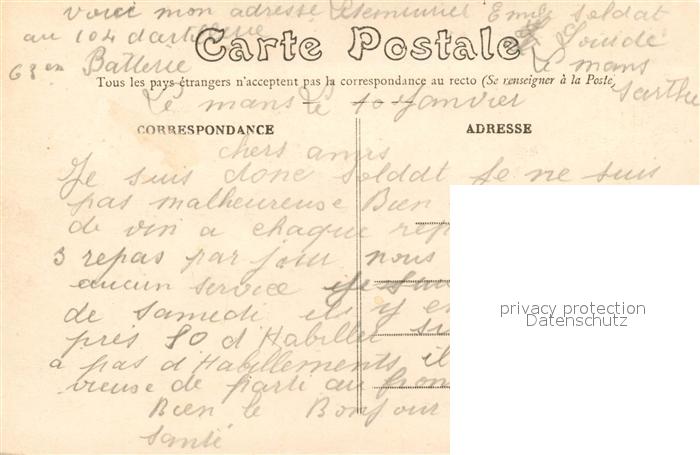 voici mon adresse Emile soldat
au 104 d'artillerie
Carte Postale
63 en Batterie mans
Tous les pays étrangers n'acceptent pas la correspondance au recto (Se renseigner à la Poste)
Sarthe
Le mans Le 10 Janvier
CORRESPONDANCE
ADRESSE
chers amis
Je suis donc soldat Je ne suis
pas malheureuse Bien
de vin a chaque rep
3 repas par jour nous
aucun service
de samedi
près 80 d'Habiller
a pas d'Habillements il
de parti au fron
Bien le Bonjour
santé
privacy protection
Datenschutz